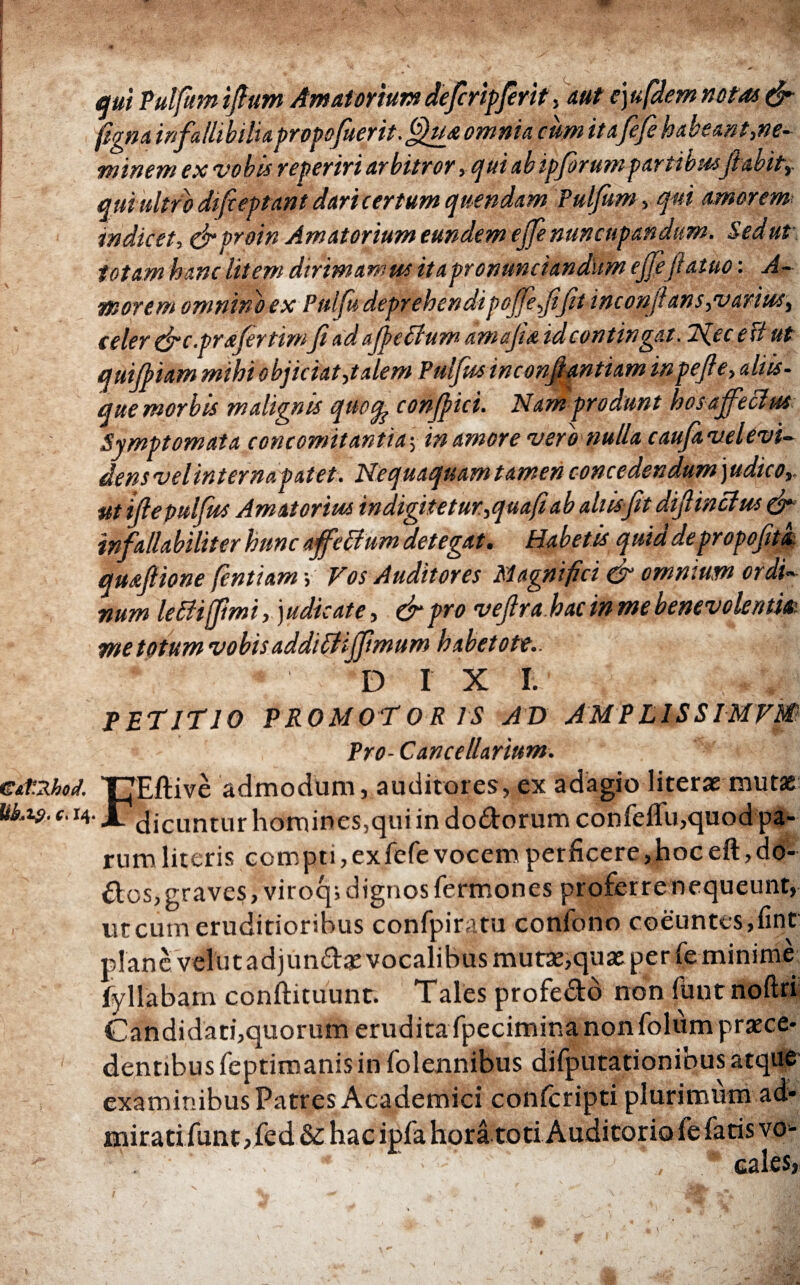 qui Pulſum iſtum Amatorium deſcripſerit, aut ejuſdem notas &
ſigna infallibilia propoſuerit. Quæ omnia cùm ita ſeſe habeant, ne-
minem ex vobis reperiri arbitror, qui ab ipſorum partibus ſtabit,
qui ultrò diſceptant dari certum quendam Pulſum, qui amorem
indicet, & proin Amatorium eundem eſſe nuncupandum. Sed ut
totam hanc litem dirimamus ita pronunciandum eſſe ſtatuo: A-
morem omninò ex Pulſu deprehendi poſſe, ſi ſit inconſtans, varius,
celer &c. præſertim ſi ad aſpectum amaſiæ id contingat. Nec eſt ut
quiſpiam mihi objiciat, talem Pulſus inconſtantiam in peſte, aliis-
que morbis malignis quoq; conſpici. Nam produnt hos affectus
Symptomata concomitantia; in amore verò nulla cauſa vel evi-
dens vel interna patet. Nequaquam tamen concedendum judico,
ut iſte pulſus Amatorius indigitetur, quaſi ab aliis ſit diſtinctus &
infallabiliter hunc affectum detegat. Habetis quid de propoſitâ
quæſtione ſentiam; Vos Auditores Magnifici & omnium ordi-
num lectiſſimi, judicate, & pro veſtra hac in me benevolentiâ
me totum vobis addictiſſimum habetote.
D I X I.
PETITIO PROMOTORIS AD AMPLISSIMVM
Pro-Cancellarium.
Cæl: Rhod. FEſtivè admodum, auditores, ex adagio literæ mutæ
lib. 29. c. 14. dicuntur homines, qui in doctorum conſeſſu, quod pa-
rum literis compti, ex ſeſe vocem perficere, hoc eſt, do-
ctos, graves, viroq; dignos ſermones proferre nequeunt,
ut cum eruditioribus conſpiratu conſono coëuntes, ſint
planè velut adjunctæ vocalibus mutæ, quæ per ſe minimè
ſyllabam conſtituunt. Tales profectò non ſunt noſtri
Candidati, quorum erudita ſpecimina non ſolùm præce-
dentibus ſeptimanis in ſolennibus diſputationibus atque
examinibus Patres Academici conſcripti plurimùm ad-
mirati ſunt, ſed & hac ipſa horâ toti Auditorio ſe ſatis vo-
cales,